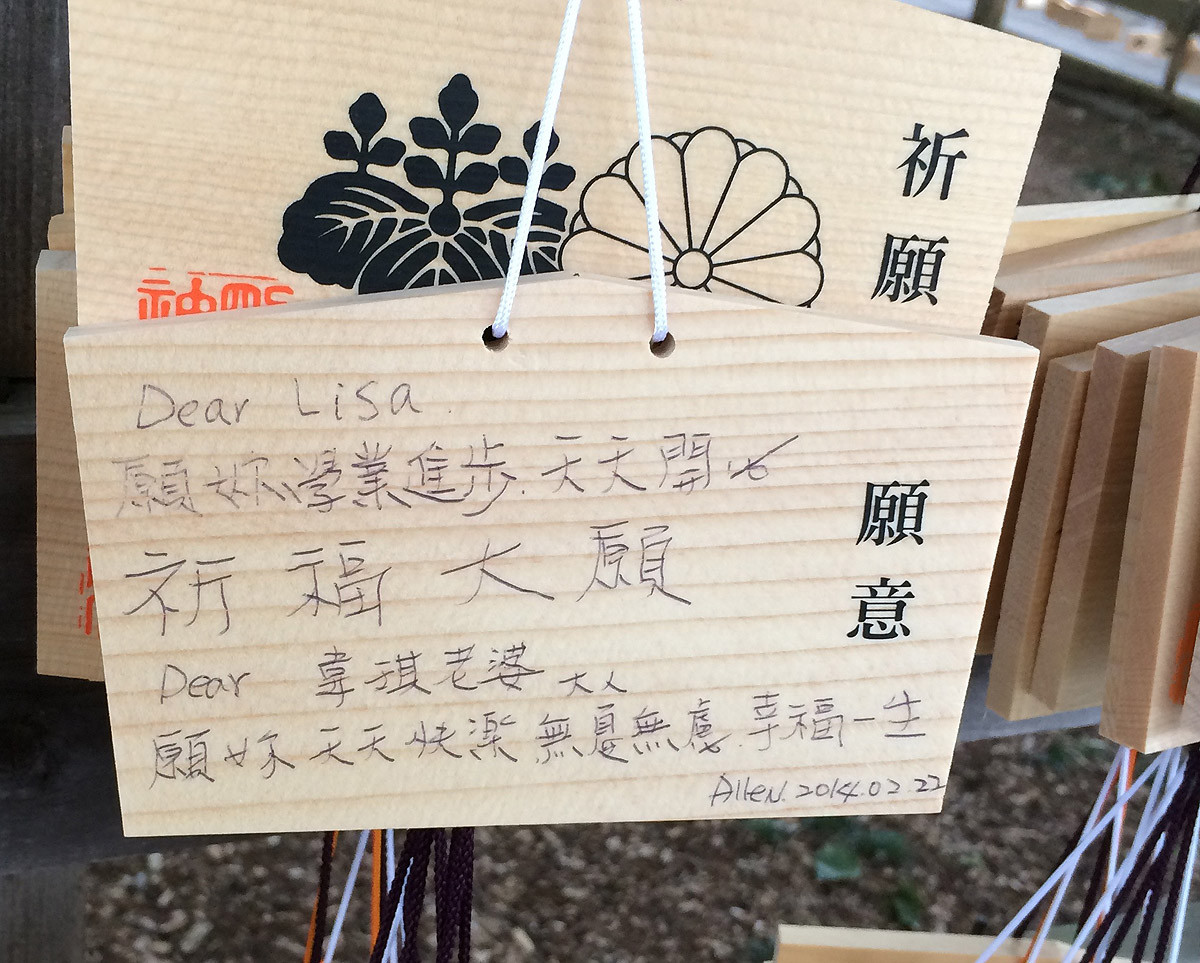 祈願
Dear Lisa.
願妳學業進步.天天開心
祈福大願
Dear 韋琪老婆大人
願妳天天快樂無憂無慮.幸福一生
Allen.2014.02.22
願意